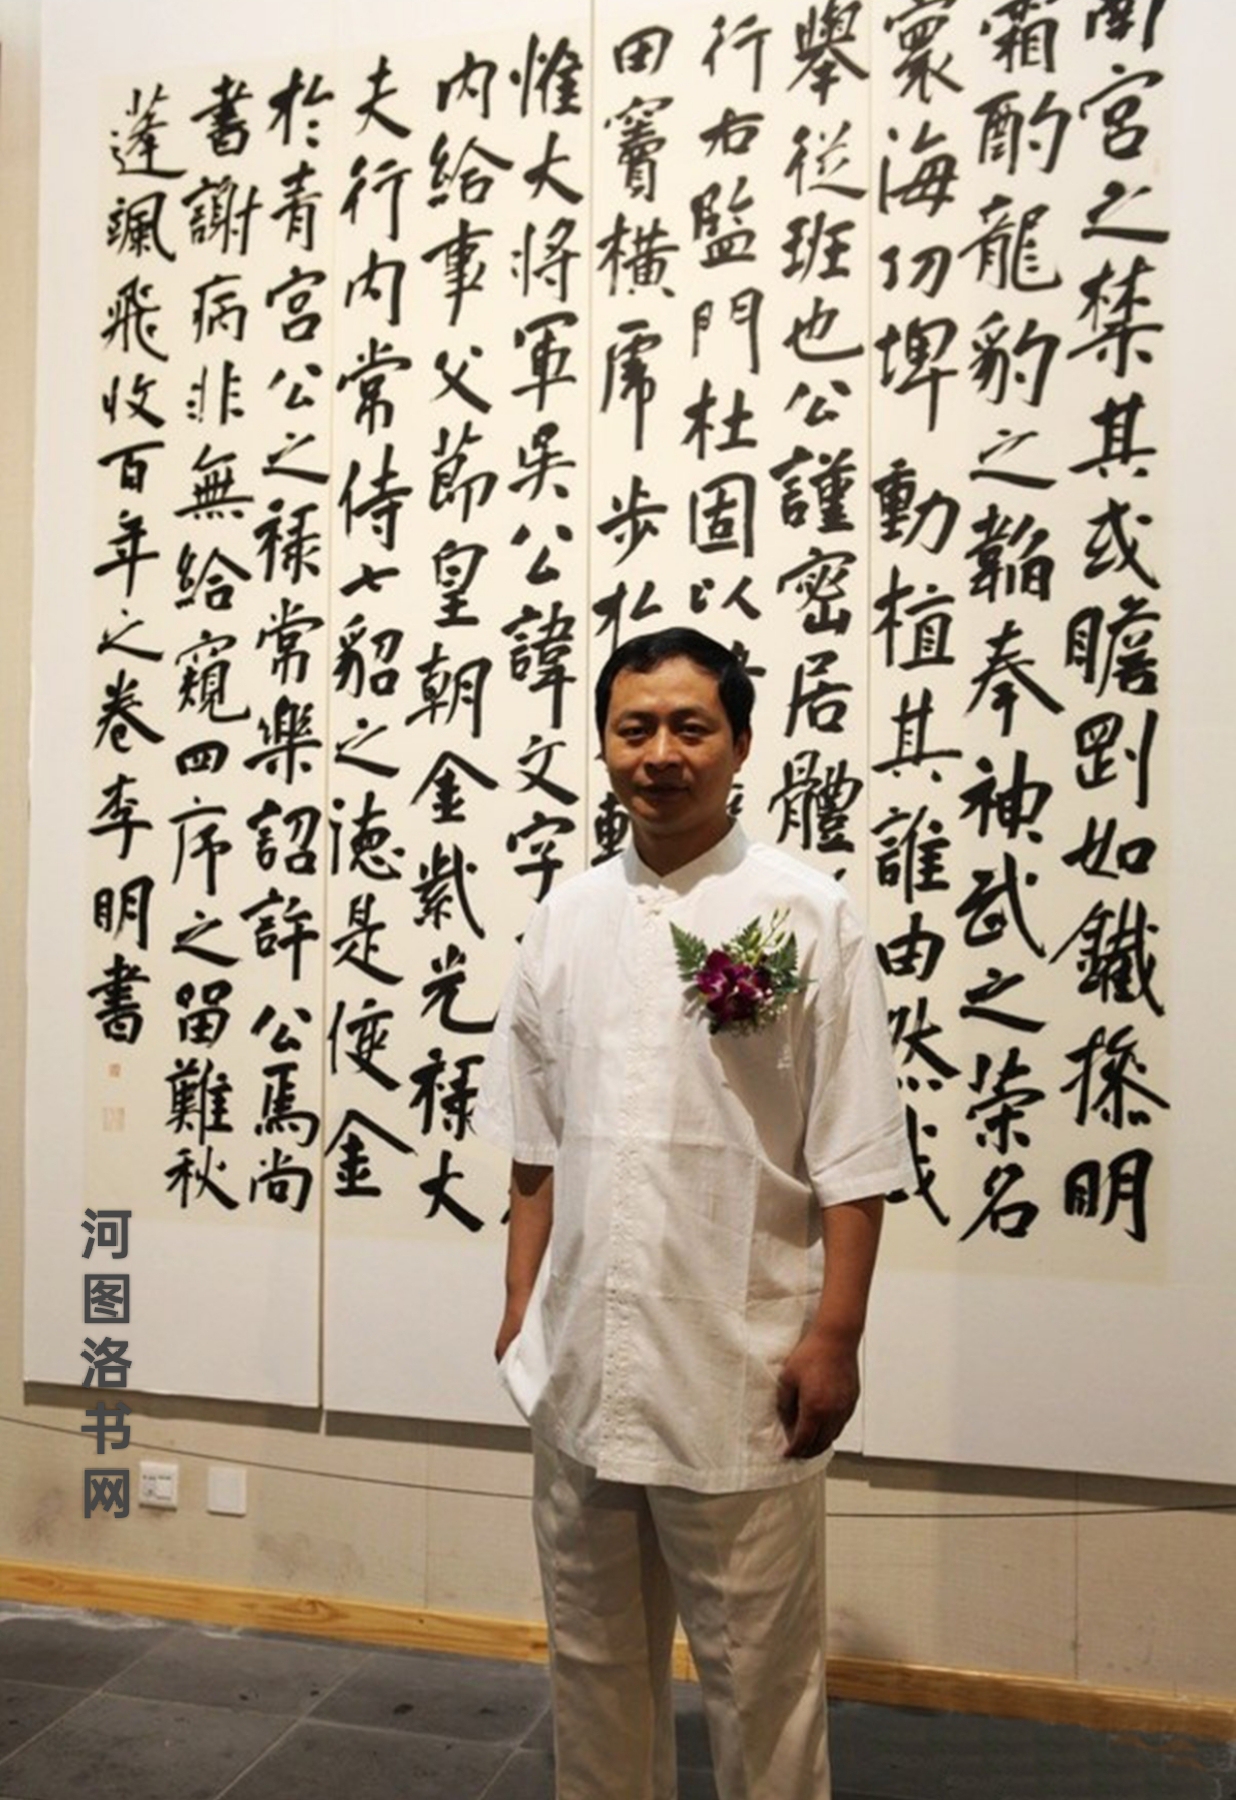 闈宮之禁其或瞻剛如鐵操明
霜酌龍豹之韜奉神武之榮名
寰海仞埤動植其誰由然哉
舉從班也公謹密居體
行右監門杜固以
田竇橫虎步於
惟大將軍吳公諱文字
内給事父節皇朝金紫光祿大
夫行内常侍七貂之德是復金
於青宮公之祿常樂詔許公焉尚
書謝病非無給窺四序之留難秋
蓬飄飛收百年之卷李明書
河图洛书网